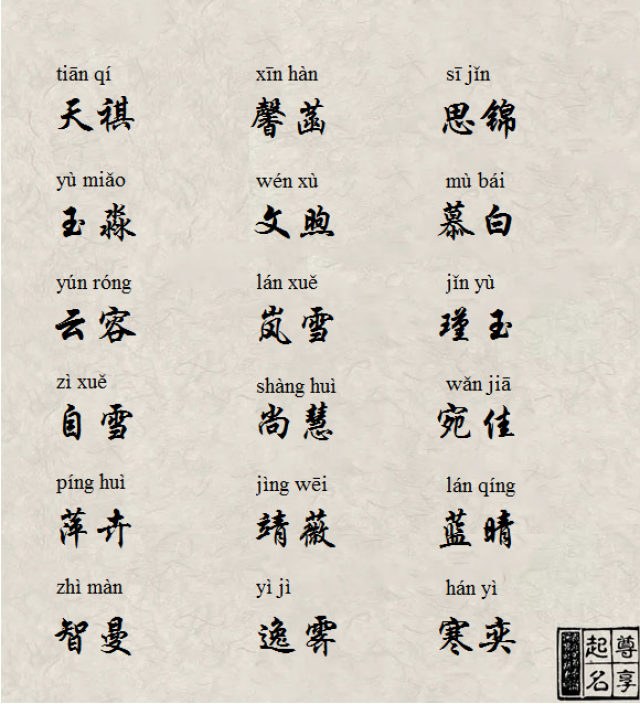 tiān qí xīn hàn sī jǐn
天祺 馨菡 思锦
yù miǎo wén xù mù bái
玉淼 文煦 慕白
yún róng lán xuě jǐn yù
云容 岚雪 瑾玉
zì xuě shàng huì wǎn jiā
自雪 尚慧 宛佳
píng huì jìng wēi lán qíng
萍卉 靖薇 蓝晴
zhì màn yì jì hán yì
智曼 逸霁 寒奕
起 尊
名 享